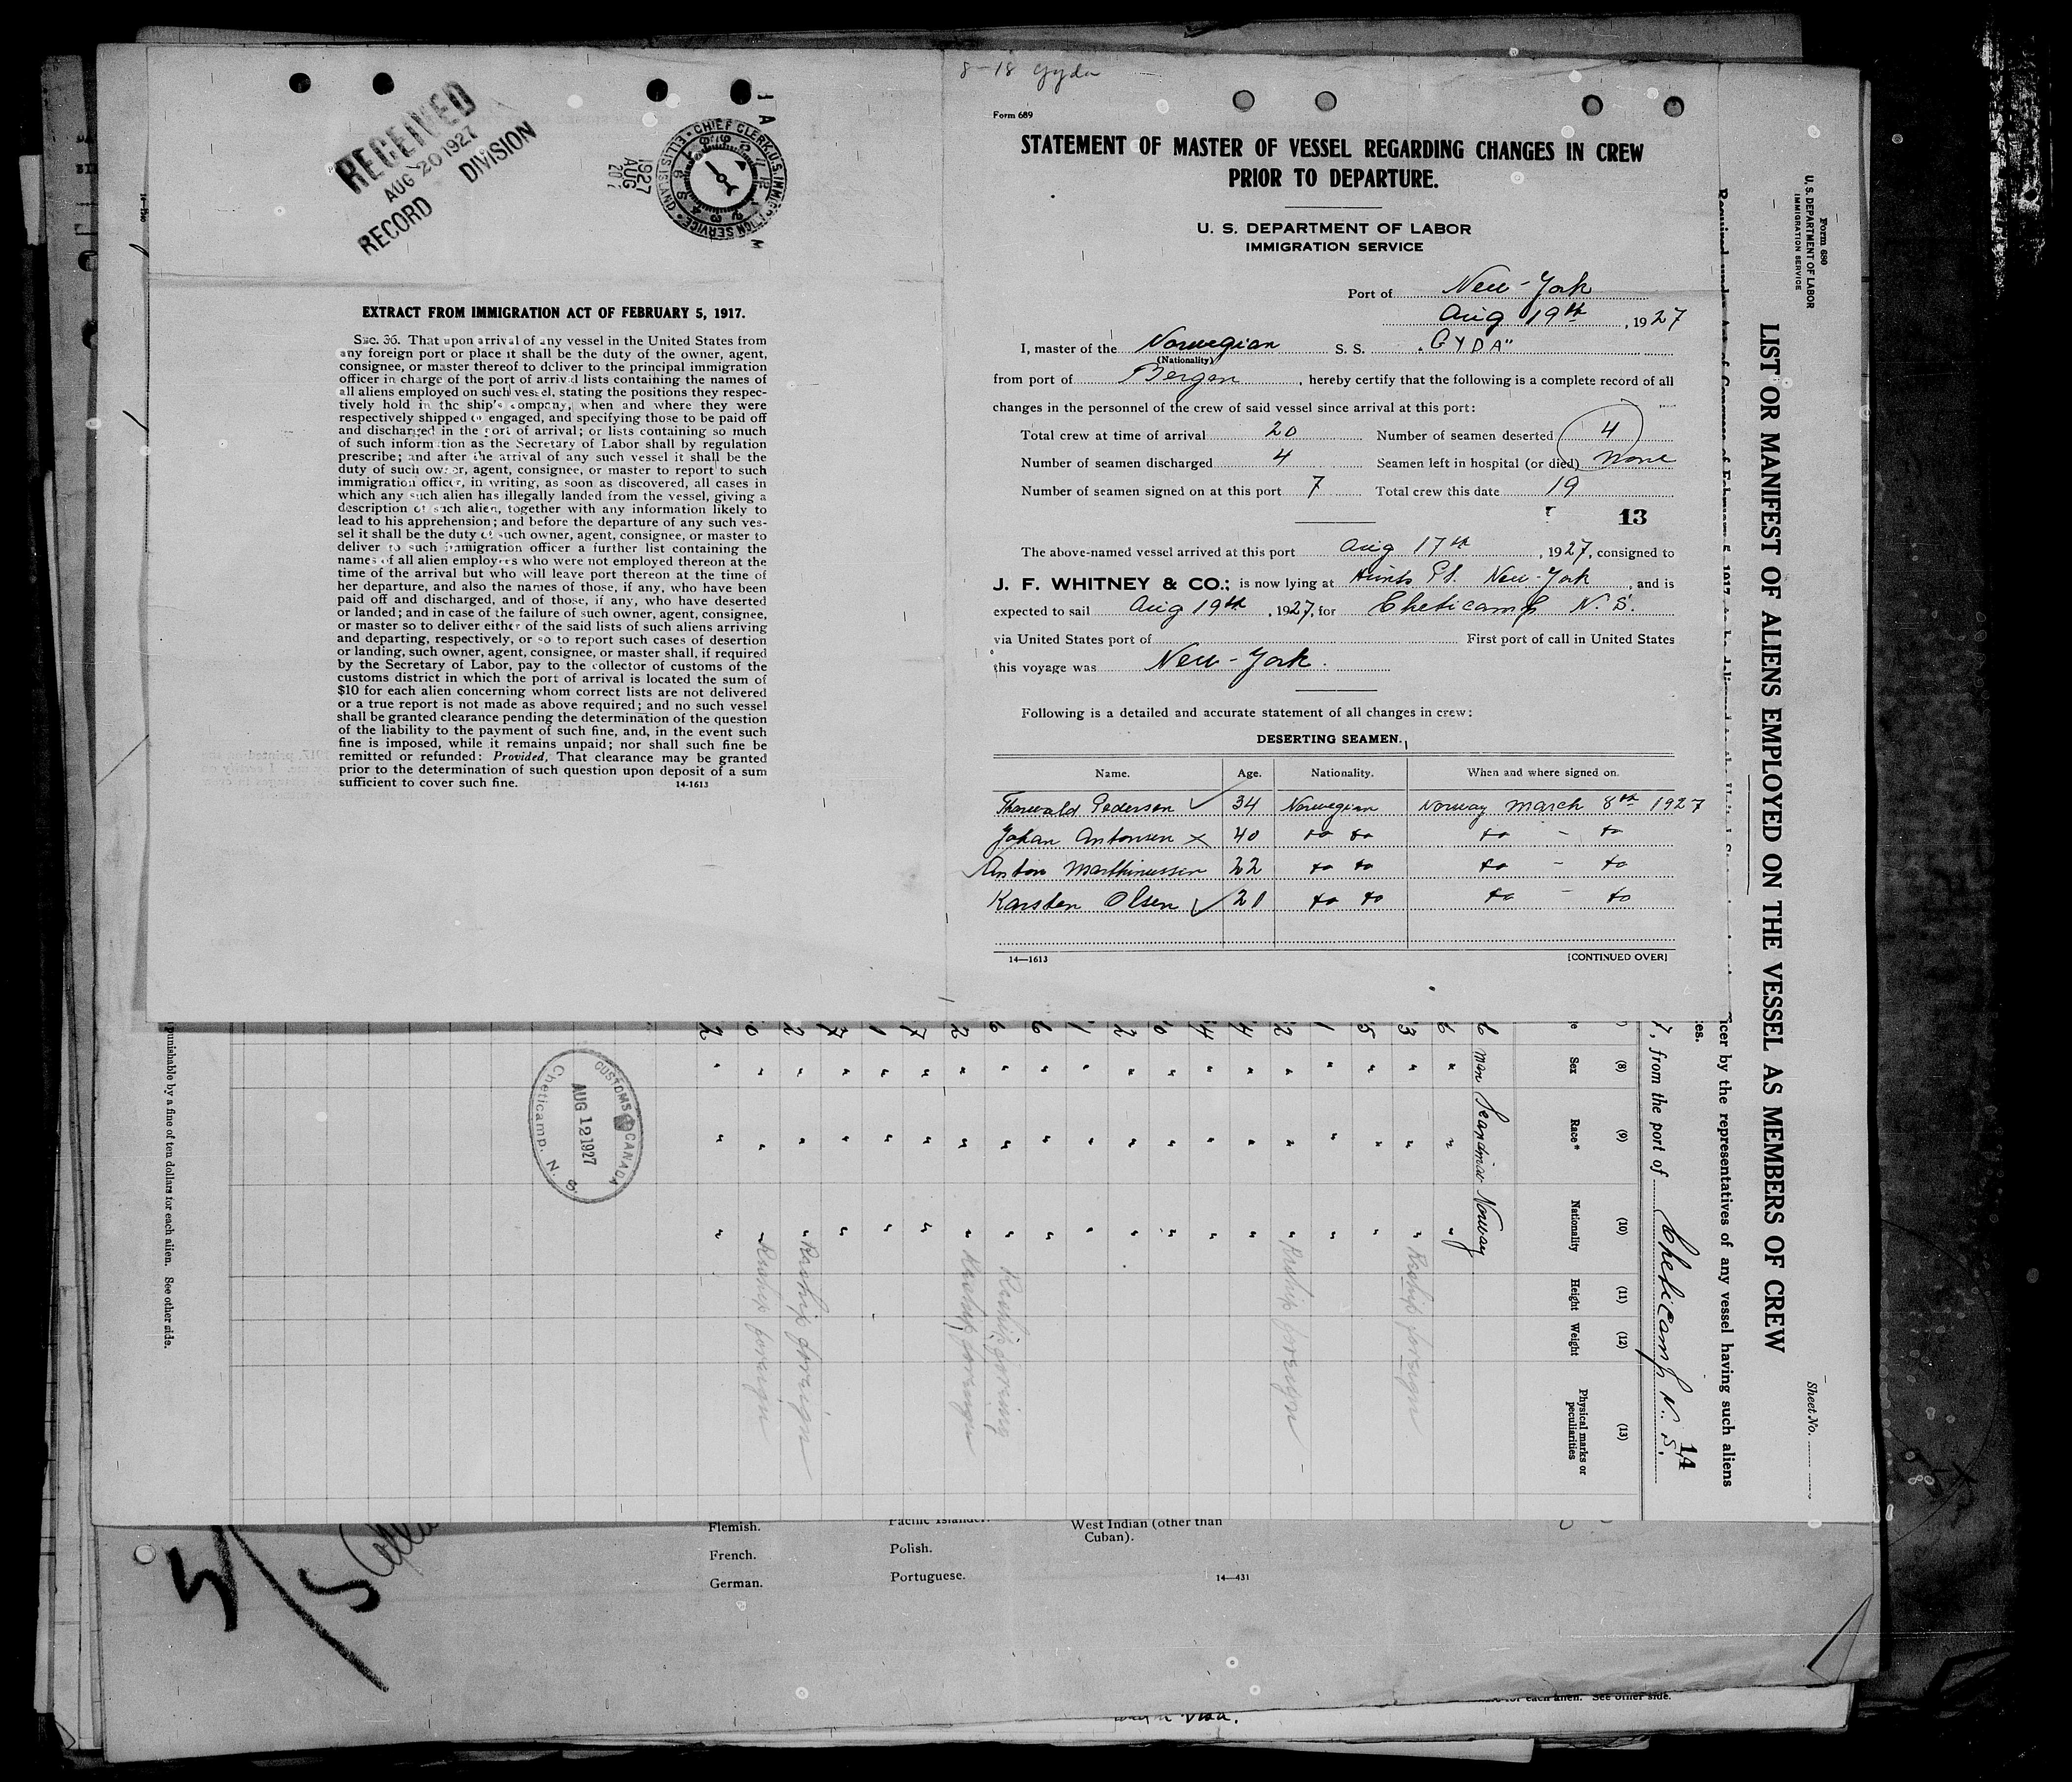 8-18 Gyda
RECEIVED
AUG 20 1927
RECORD DIVISION
CHIEF CLERK, U.S. IMMIGRATION SERVICE · ELLIS ISLAND
1927
AUG
20
EXTRACT FROM IMMIGRATION ACT OF FEBRUARY 5, 1917.
SEC. 36. That upon arrival of any vessel in the United States from
any foreign port or place it shall be the duty of the owner, agent,
consignee, or master thereof to deliver to the principal immigration
officer in charge of the port of arrival lists containing the names of
all aliens employed on such vessel, stating the positions they respec-
tively hold in the ship's company, when and where they were
respectively shipped or engaged, and specifying those to be paid off
and discharged in the port of arrival; or lists containing so much
of such information as the Secretary of Labor shall by regulation
prescribe; and after the arrival of any such vessel it shall be the
duty of such owner, agent, consignee, or master to report to such
immigration officer, in writing, as soon as discovered, all cases in
which any such alien has illegally landed from the vessel, giving a
description of such alien, together with any information likely to
lead to his apprehension; and before the departure of any such ves-
sel it shall be the duty of such owner, agent, consignee, or master to
deliver to such immigration officer a further list containing the
names of all alien employees who were not employed thereon at the
time of the arrival but who will leave port thereon at the time of
her departure, and also the names of those, if any, who have been
paid off and discharged, and of those, if any, who have deserted
or landed; and in case of the failure of such owner, agent, consignee,
or master so to deliver either of the said lists of such aliens arriving
and departing, respectively, or so to report such cases of desertion
or landing, such owner, agent, consignee, or master shall, if required
by the Secretary of Labor, pay to the collector of customs of the
customs district in which the port of arrival is located the sum of
$10 for each alien concerning whom correct lists are not delivered
or a true report is not made as above required; and no such vessel
shall be granted clearance pending the determination of the question
of the liability to the payment of such fine, and, in the event such
fine is imposed, while it remains unpaid; nor shall such fine be
remitted or refunded: Provided, That clearance may be granted
prior to the determination of such question upon deposit of a sum
sufficient to cover such fine. 14-1613
Form 689
STATEMENT OF MASTER OF VESSEL REGARDING CHANGES IN CREW
PRIOR TO DEPARTURE.
U. S. DEPARTMENT OF LABOR
IMMIGRATION SERVICE
Port of New-York
Aug 19th, 1927
I, master of the Norwegian S. S. "GYDA"
(Nationality)
from port of Bergen, hereby certify that the following is a complete record of all
changes in the personnel of the crew of said vessel since arrival at this port:
Total crew at time of arrival 20 Number of seamen deserted 4
Number of seamen discharged 4 Seamen left in hospital (or died) none
Number of seamen signed on at this port 7 Total crew this date 19
13
The above-named vessel arrived at this port Aug 17th, 1927, consigned to
J. F. WHITNEY & CO.; is now lying at Hunts Pt. New-York, and is
expected to sail Aug 19th, 1927, for Cheticamp N. S.
via United States port of First port of call in United States
this voyage was New-York.
Following is a detailed and accurate statement of all changes in crew:
DESERTING SEAMEN.
Name. Age. Nationality. When and where signed on.
Thorvald Pedersen ✓ 34 Norwegian Norway March 8th 1927
Johan Antonsen × 40 do do do - do
Anton Marthinussen 22 do do do - do
Karsten Olsen ✓ 21 do do do - do
14—1613 [CONTINUED OVER]
Form 680
U. S. DEPARTMENT OF LABOR
IMMIGRATION SERVICE
Sheet No.
LIST OR MANIFEST OF ALIENS EMPLOYED ON THE VESSEL AS MEMBERS OF CREW
officer by the representatives of any vessel having such aliens
7, from the port of Cheticamp N. S.
14
(8) (9) (10) (11) (12) (13)
Sex Race* Nationality Height Weight Physical marks or peculiarities
man Scandinav Norway
Reship foreign
Reship foreign
Reship foreign
Reship foreign
Reship foreign
Reship foreign
CUSTOMS CANADA
AUG 12 1927
Cheticamp, N. S.
punishable by a fine of ten dollars for each alien. See other side.
Flemish. Pacific Islander. West Indian (other than
Cuban).
French. Polish.
German. Portuguese. 14—431
for each alien. See other side.